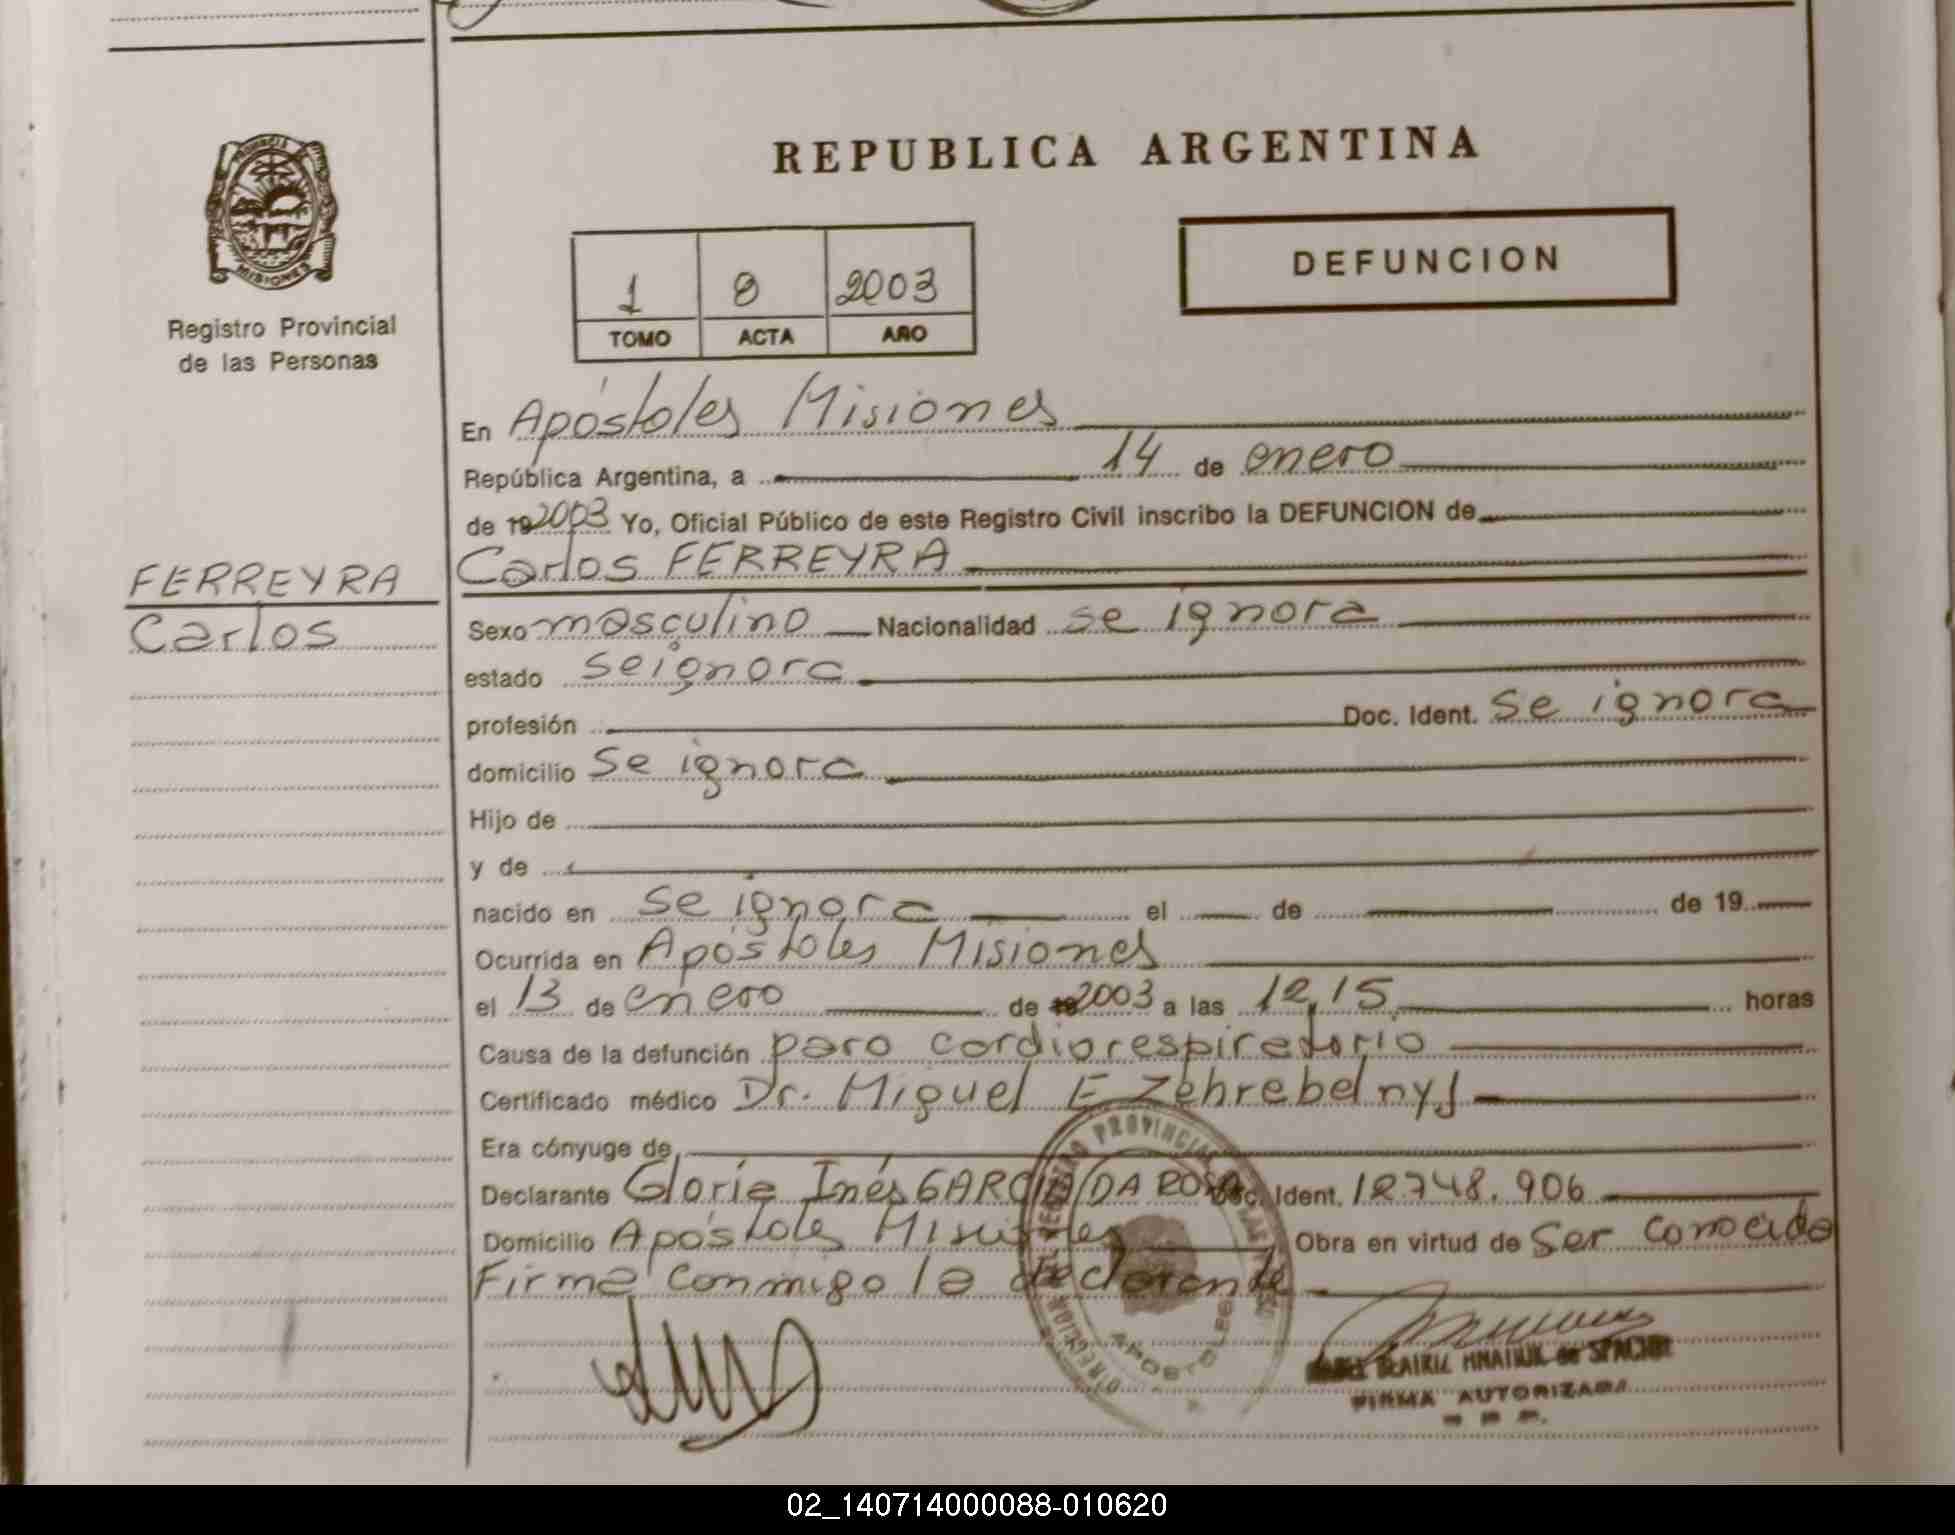 REPUBLICA ARGENTINA
PROVINCIA
MISIONES
Registro Provincial
de las Personas
DEFUNCION
1 8 2003
TOMO ACTA AÑO
En Apóstoles Misiones
República Argentina, a 14 de enero
de 19 2003 Yo, Oficial Público de este Registro Civil inscribo la DEFUNCION de
Carlos FERREYRA
FERREYRA
Carlos
Sexo masculino Nacionalidad se ignora
estado se ignora
profesión Doc. Ident. se ignora
domicilio se ignora
Hijo de
y de
nacido en se ignora el de de 19
Ocurrida en Apóstoles Misiones
el 13 de enero de 19 2003 a las 12,15 horas
Causa de la defunción paro cardiorespiratorio
Certificado médico Dr. Miguel E Zehrebelnyj
Era cónyuge de
Declarante Gloria Inés GARCIA DA ROSA Doc. Ident. 12748.906
Domicilio Apóstoles Misiones Obra en virtud de ser conocida
Firma conmigo la declarante
APOSTOLES
BEATRIZ de
FIRMA AUTORIZADA
02_140714000088-010620